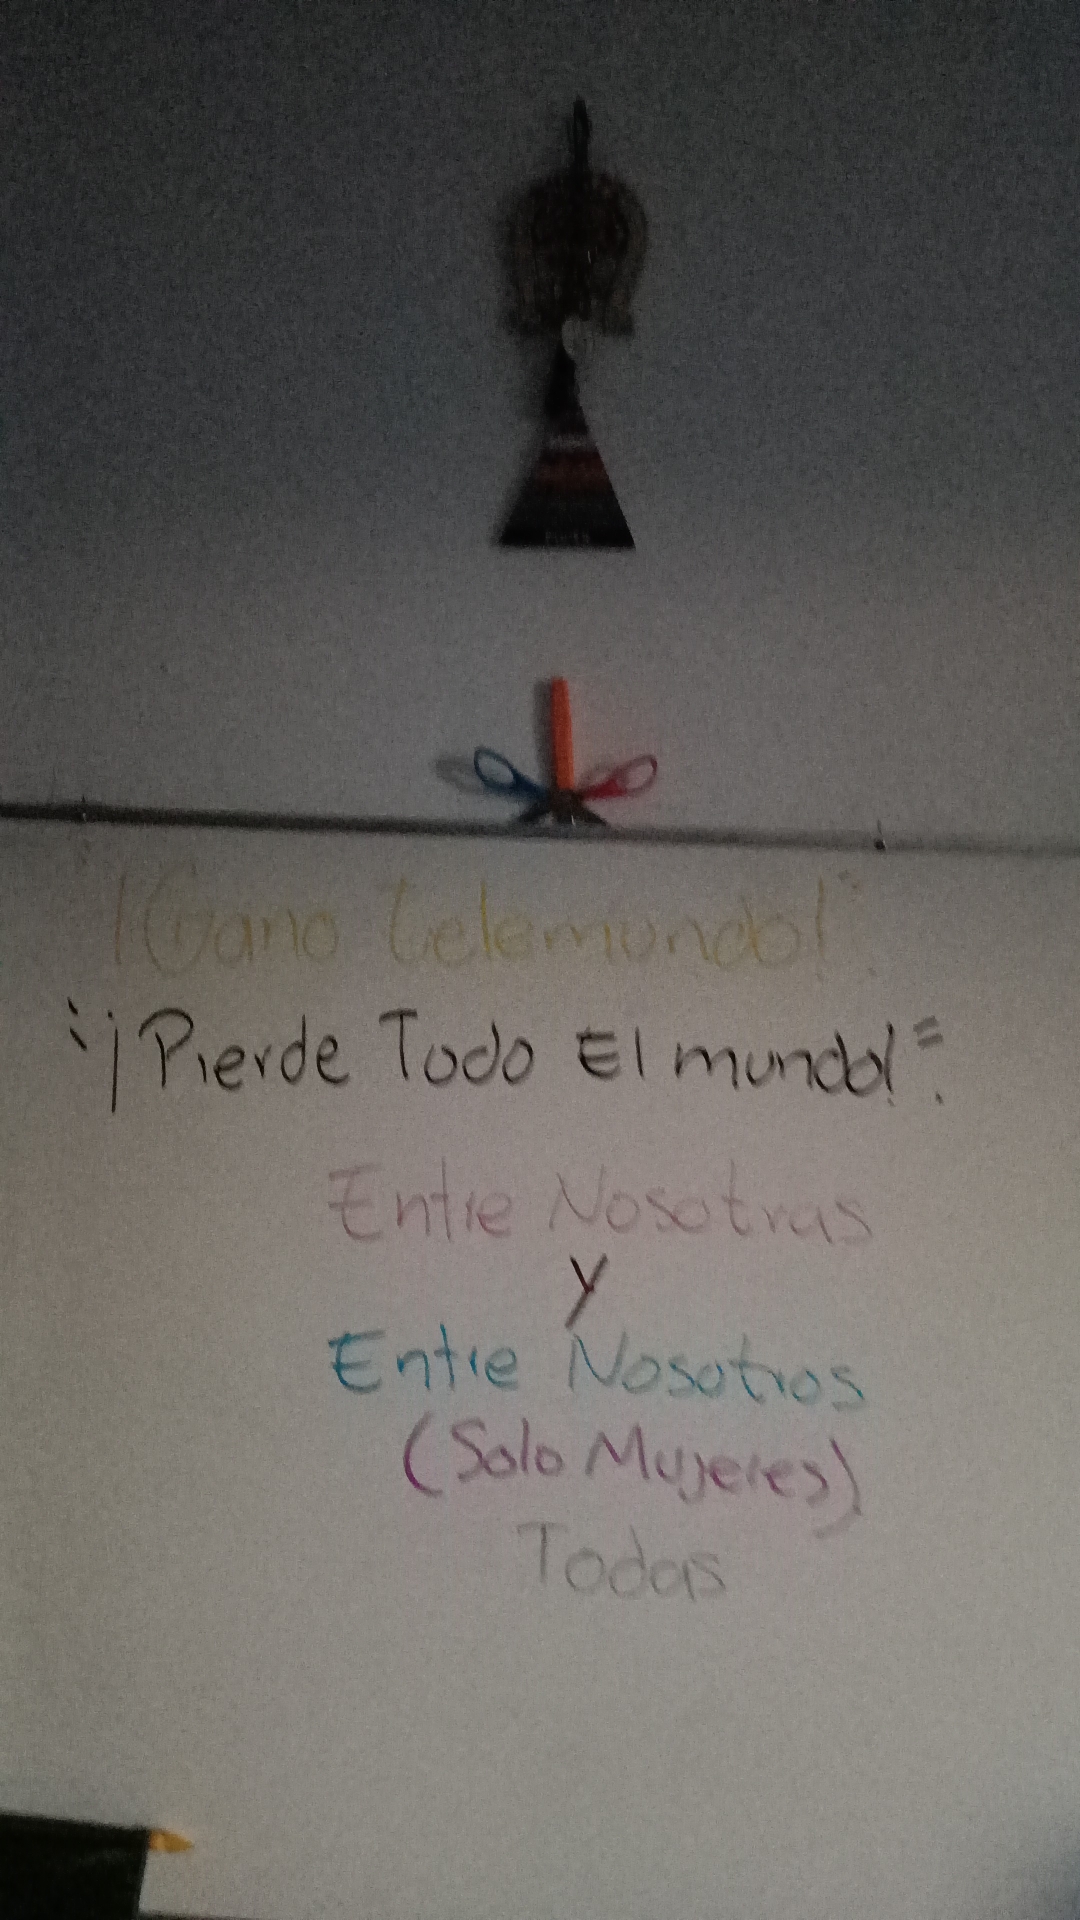 ¡Gano telemundo!".
"¡Pierde Todo El mundo!".
Entre Nosotras
y
Entre Nosotros
(Solo Mujeres)
Todas